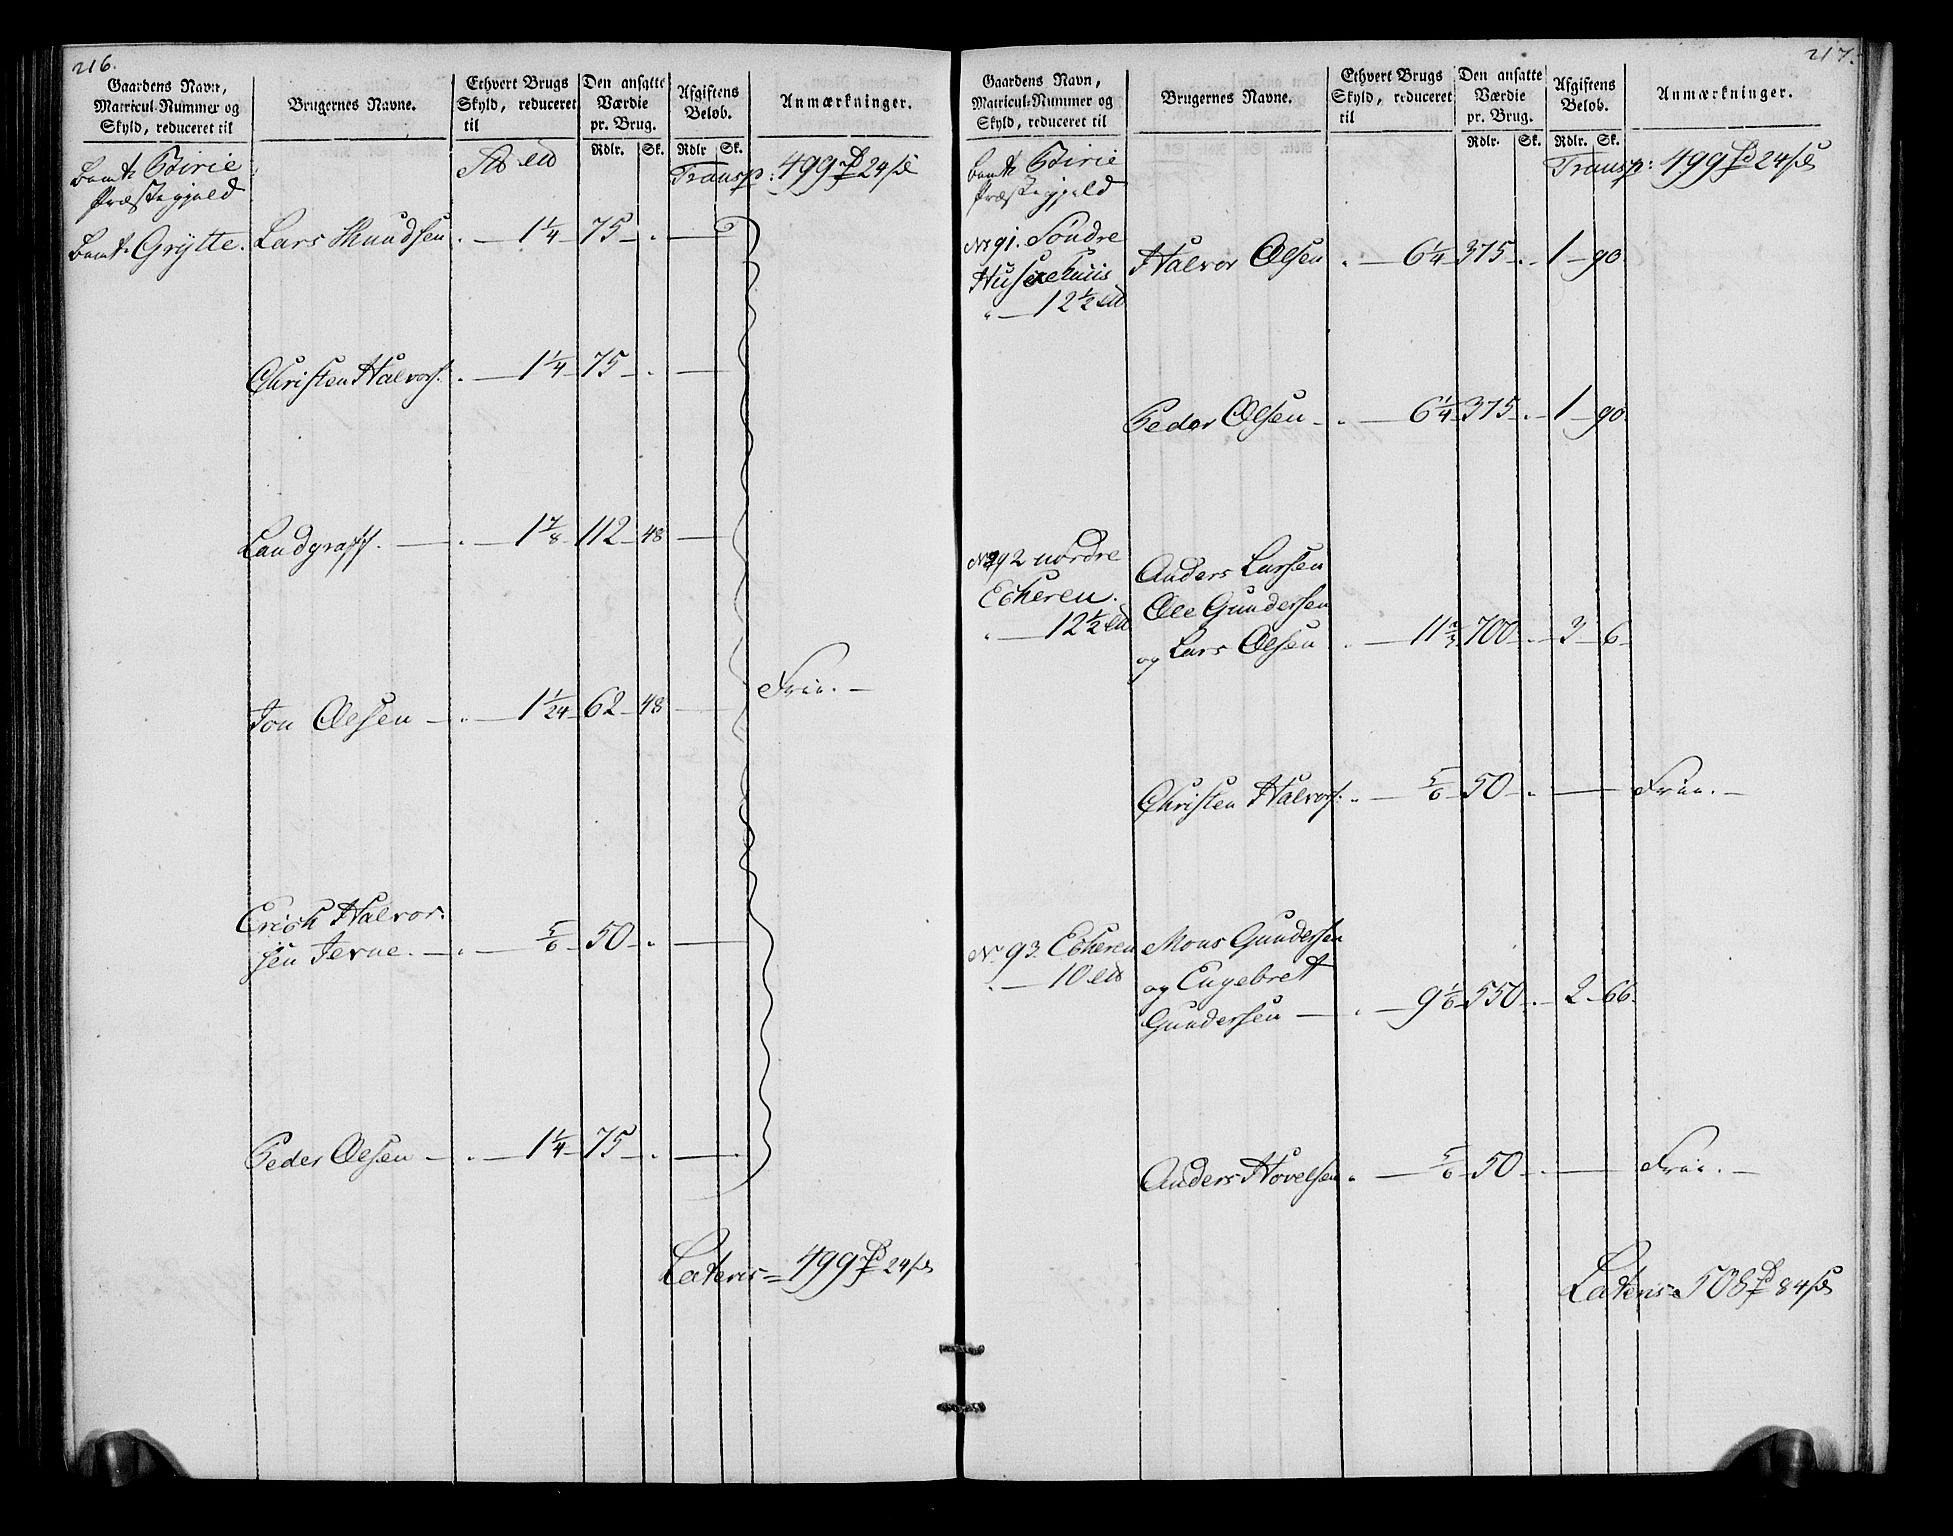 216.
Gaardens Navn, Matricul-Nummer og Skyld, reduceret til
Brugernes Navne.
Ethvert Brugs Skyld, reduceret til
Den ansatte Værdie pr. Brug.
Rdlr. Sk.
Afgiftens Beløb.
Rdlr Sk.
Anmærkninger.
Birie
Præstegjeld
Transp: 499 24
Grÿtte. Lars Knudsen . — 1 1/4 75 — . —
Christen Halvors. . — 1 1/4 75 — . —
Landgraff. — . — 1 7/8 112 48 —
Jon Olsen — . — 1 1/24 62 48 — Frie. —
Erich Halvor-
sen Jevne. — . — 5/6 50 — . —
Peder Olsen — . — 1 1/4 75 — . —
Lateris = 499 24
217.
Gaardens Navn, Matricul-Nummer og Skyld, reduceret til
Brugernes Navne.
Ethvert Brugs Skyld, reduceret til
Den ansatte Værdie pr. Brug.
Rdlr. Sk.
Afgiftens Beløb.
Rdlr. Sk.
Anmærkninger.
Birie
Præstegjeld
Transp: 499 24
No 91. Søndre
Halvor Olsen . — 6 1/4 375 — . — 1 — 90.
12 1/2
Peder Olsen — . — 6 1/4 375 — . — 1 — 90.
92 nordre
Anders Larsen
Eckeren.
Ole Gundersen
12 1/2
og Lars Olsen . — 11 2/3 700 — . — 3 — 6 —
Christen Halvors. . — 5/6 50 — . — Frie. —
No 93. Eckeren Mons Gundersen
10
og Engebret
Gundersen — . — 9 1/6 550 — . — 2 — 66.
Anders Hovelsen . — 5/6 50 — . — Frie. —
Lateris = 508 84